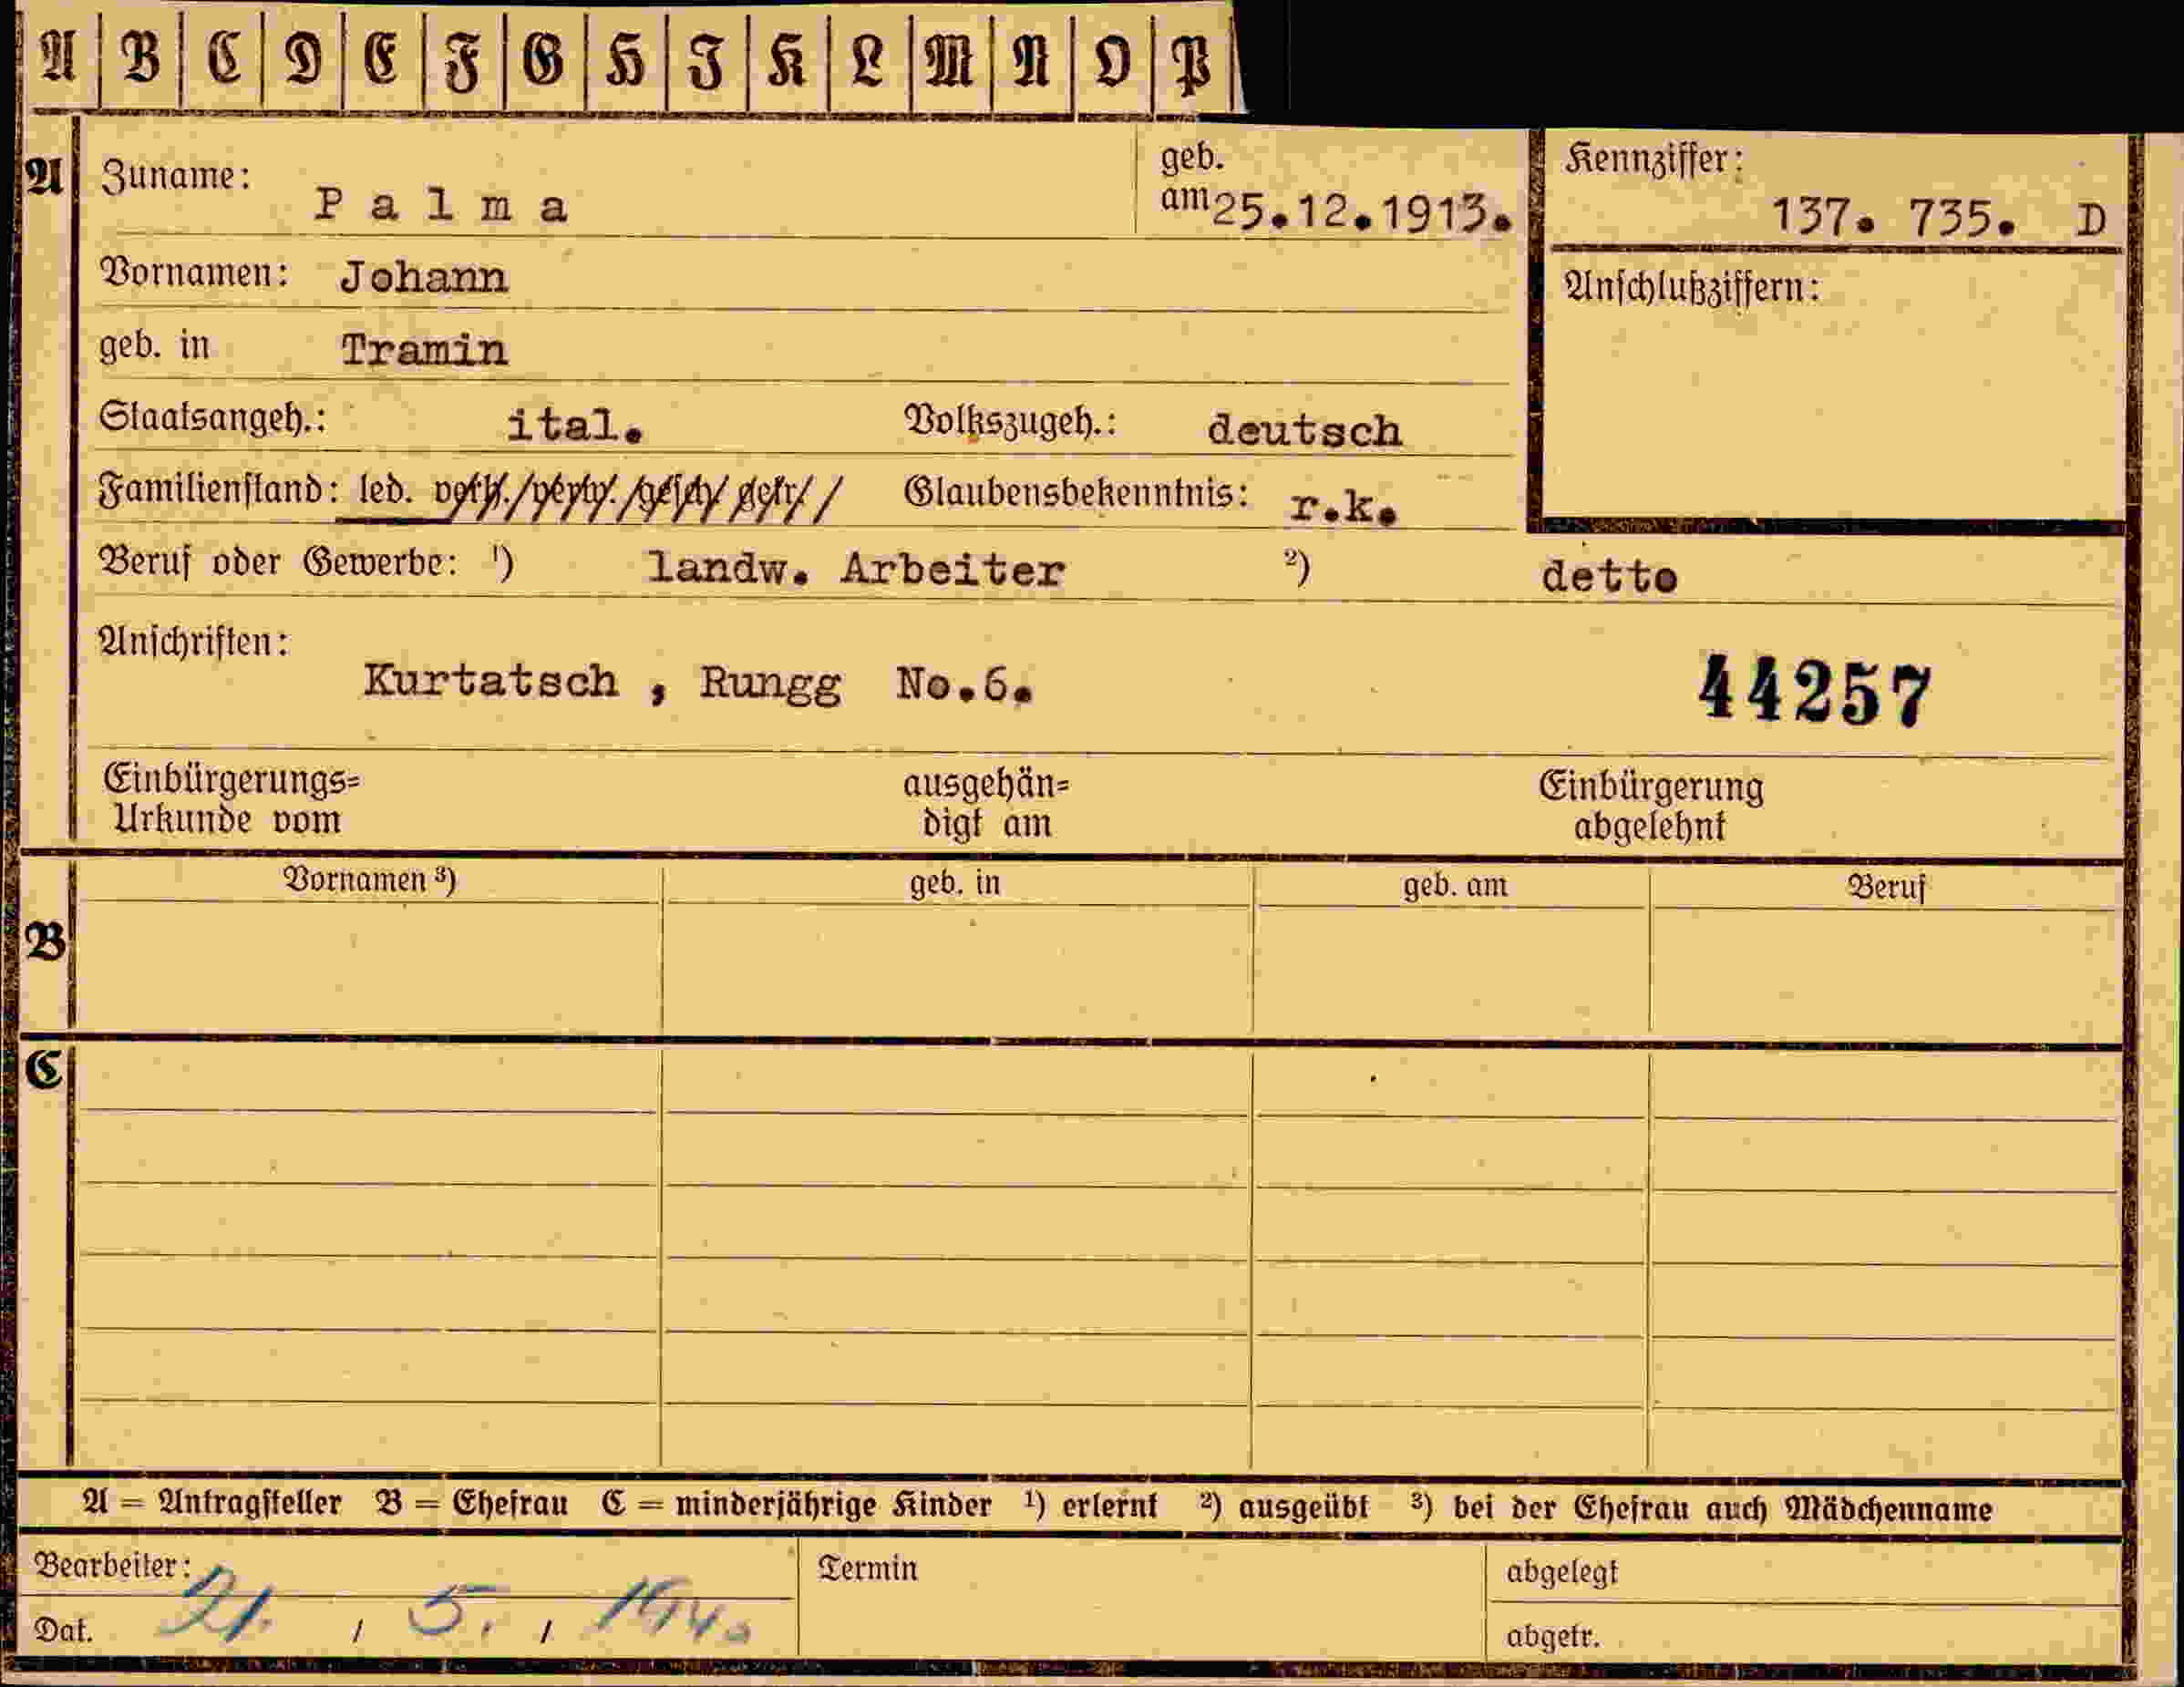 A B C D E F G H J K L M N O P
A Zuname: Palma geb. am 25.12.1913. Kennziffer: 137. 735. D
Vornamen: Johann Anschlußziffern:
geb. in Tramin
Staatsangeh.: ital. Volkszugeh.: deutsch
Familienstand: led. verh./verw./gesch/getr/ Glaubensbekenntnis: r.k.
Beruf oder Gewerbe: ¹) landw. Arbeiter ²) detto
Anschriften:
Kurtatsch , Rungg No.6. 44257
Einbürgerungs= Urkunde vom ausgehän= digt am Einbürgerung abgelehnt
Vornamen ³) geb. in geb. am Beruf
B
C
A = Antragsteller B = Ehefrau C = minderjährige Kinder ¹) erlernt ²) ausgeübt ³) bei der Ehefrau auch Mädchenname
Bearbeiter: Termin abgelegt
Dat. 21. / 5. / 1940 abgetr.